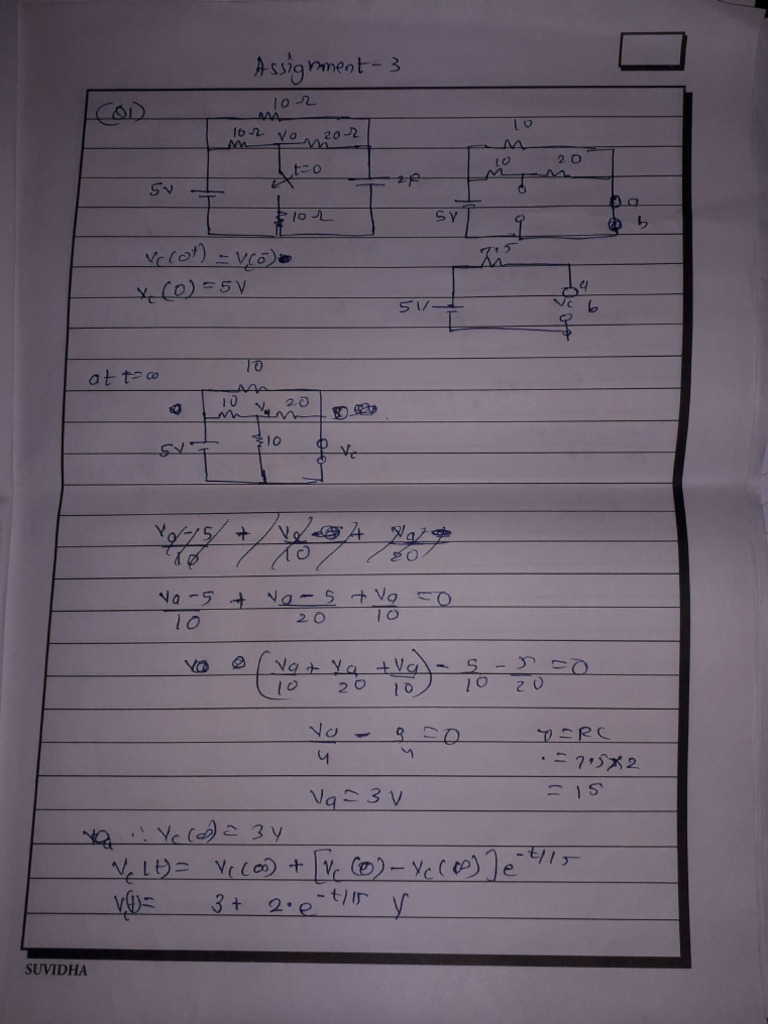 Assignment - 3
(Q1)
10 Ω
10 Ω Va 20 Ω
t=0
5V
2F
10 Ω
10
10 20
5V
a
b
Vc(0+) = Vc(0-)
Vc(0) = 5V
7.5
5V
a
Vc b
at t=∞
10
10 Va 20
5V
10
Vc
Va - 5 / 10 + Va / 10 + Va / 20
Va - 5 / 10 + Va - 5 / 20 + Va / 10 = 0
(Va / 10 + Va / 20 + Va / 10) - 5 / 10 - 5 / 20 = 0
Va / 4 - 9 / 4 = 0
τ = RC
= 7.5 x 2
= 15
Va = 3V
∴ Vc(∞) = 3V
Vc(t) = Vc(∞) + [Vc(0) - Vc(∞)] e^-t/15
Vc(t) = 3 + 2.e^-t/15 V
SUVIDHA